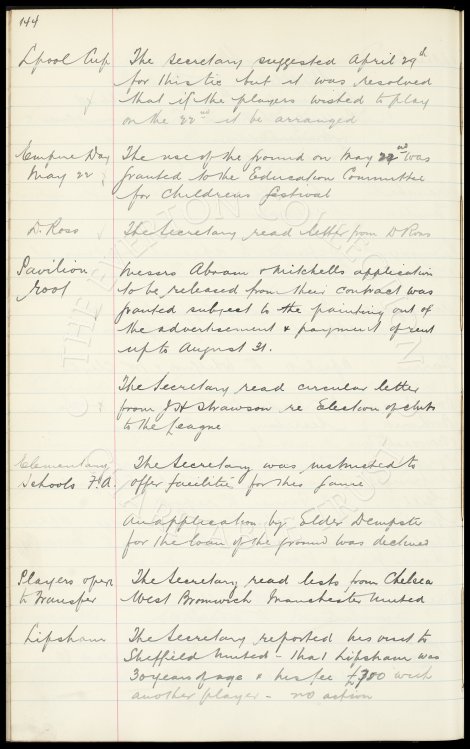 144
Lpool Cup The Secretary suggested April 29th
for this tie but it was resolved
that if the players wished to play
on the 22nd it be arranged
Empire Day The use of the ground on May 22nd was
May 22 granted to the Education Committee
for Childrens festival
D. Ross The Secretary read letter from D Ross
Pavilion Messrs Abram & Mitchells application
roof to be released from their contract was
granted subject to the painting out of
the advertisement & payment of rent
up to August 31.
The Secretary read circular letter
from J H Strawson re Election of clubs
to the League
Elementary The Secretary was instructed to
Schools F.A. offer facilities for this game
An application by Elder Dempster
for the loan of the ground was declined
Players open The Secretary read lists from Chelsea
to Transfer West Bromwich Manchester United
Lipsham The Secretary reported his visit to
Sheffield United - that Lipsham was
30 years of age & his fee with
another player - no action
THE EVERTON COLLECTION